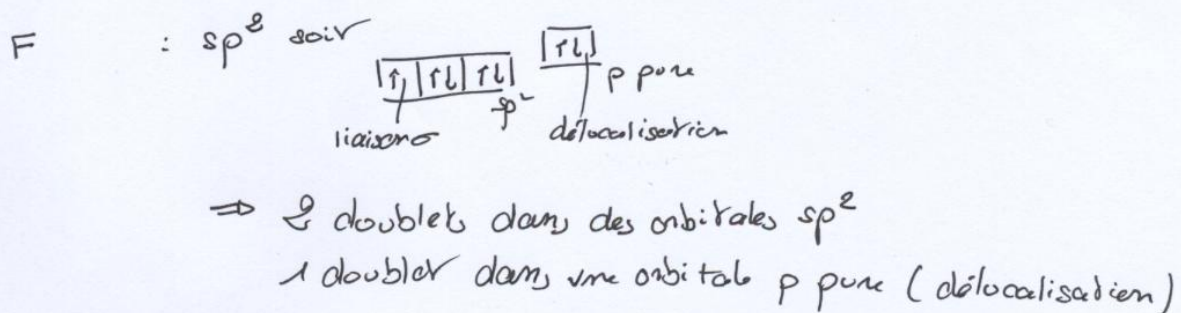 F : sp² soit
|↑|↑↓|↑↓| |↑↓|
sp² p pure
liaison σ délocalisation
⇒ 2 doublets dans des orbitales sp²
1 doublet dans une orbitale p pure (délocalisation)